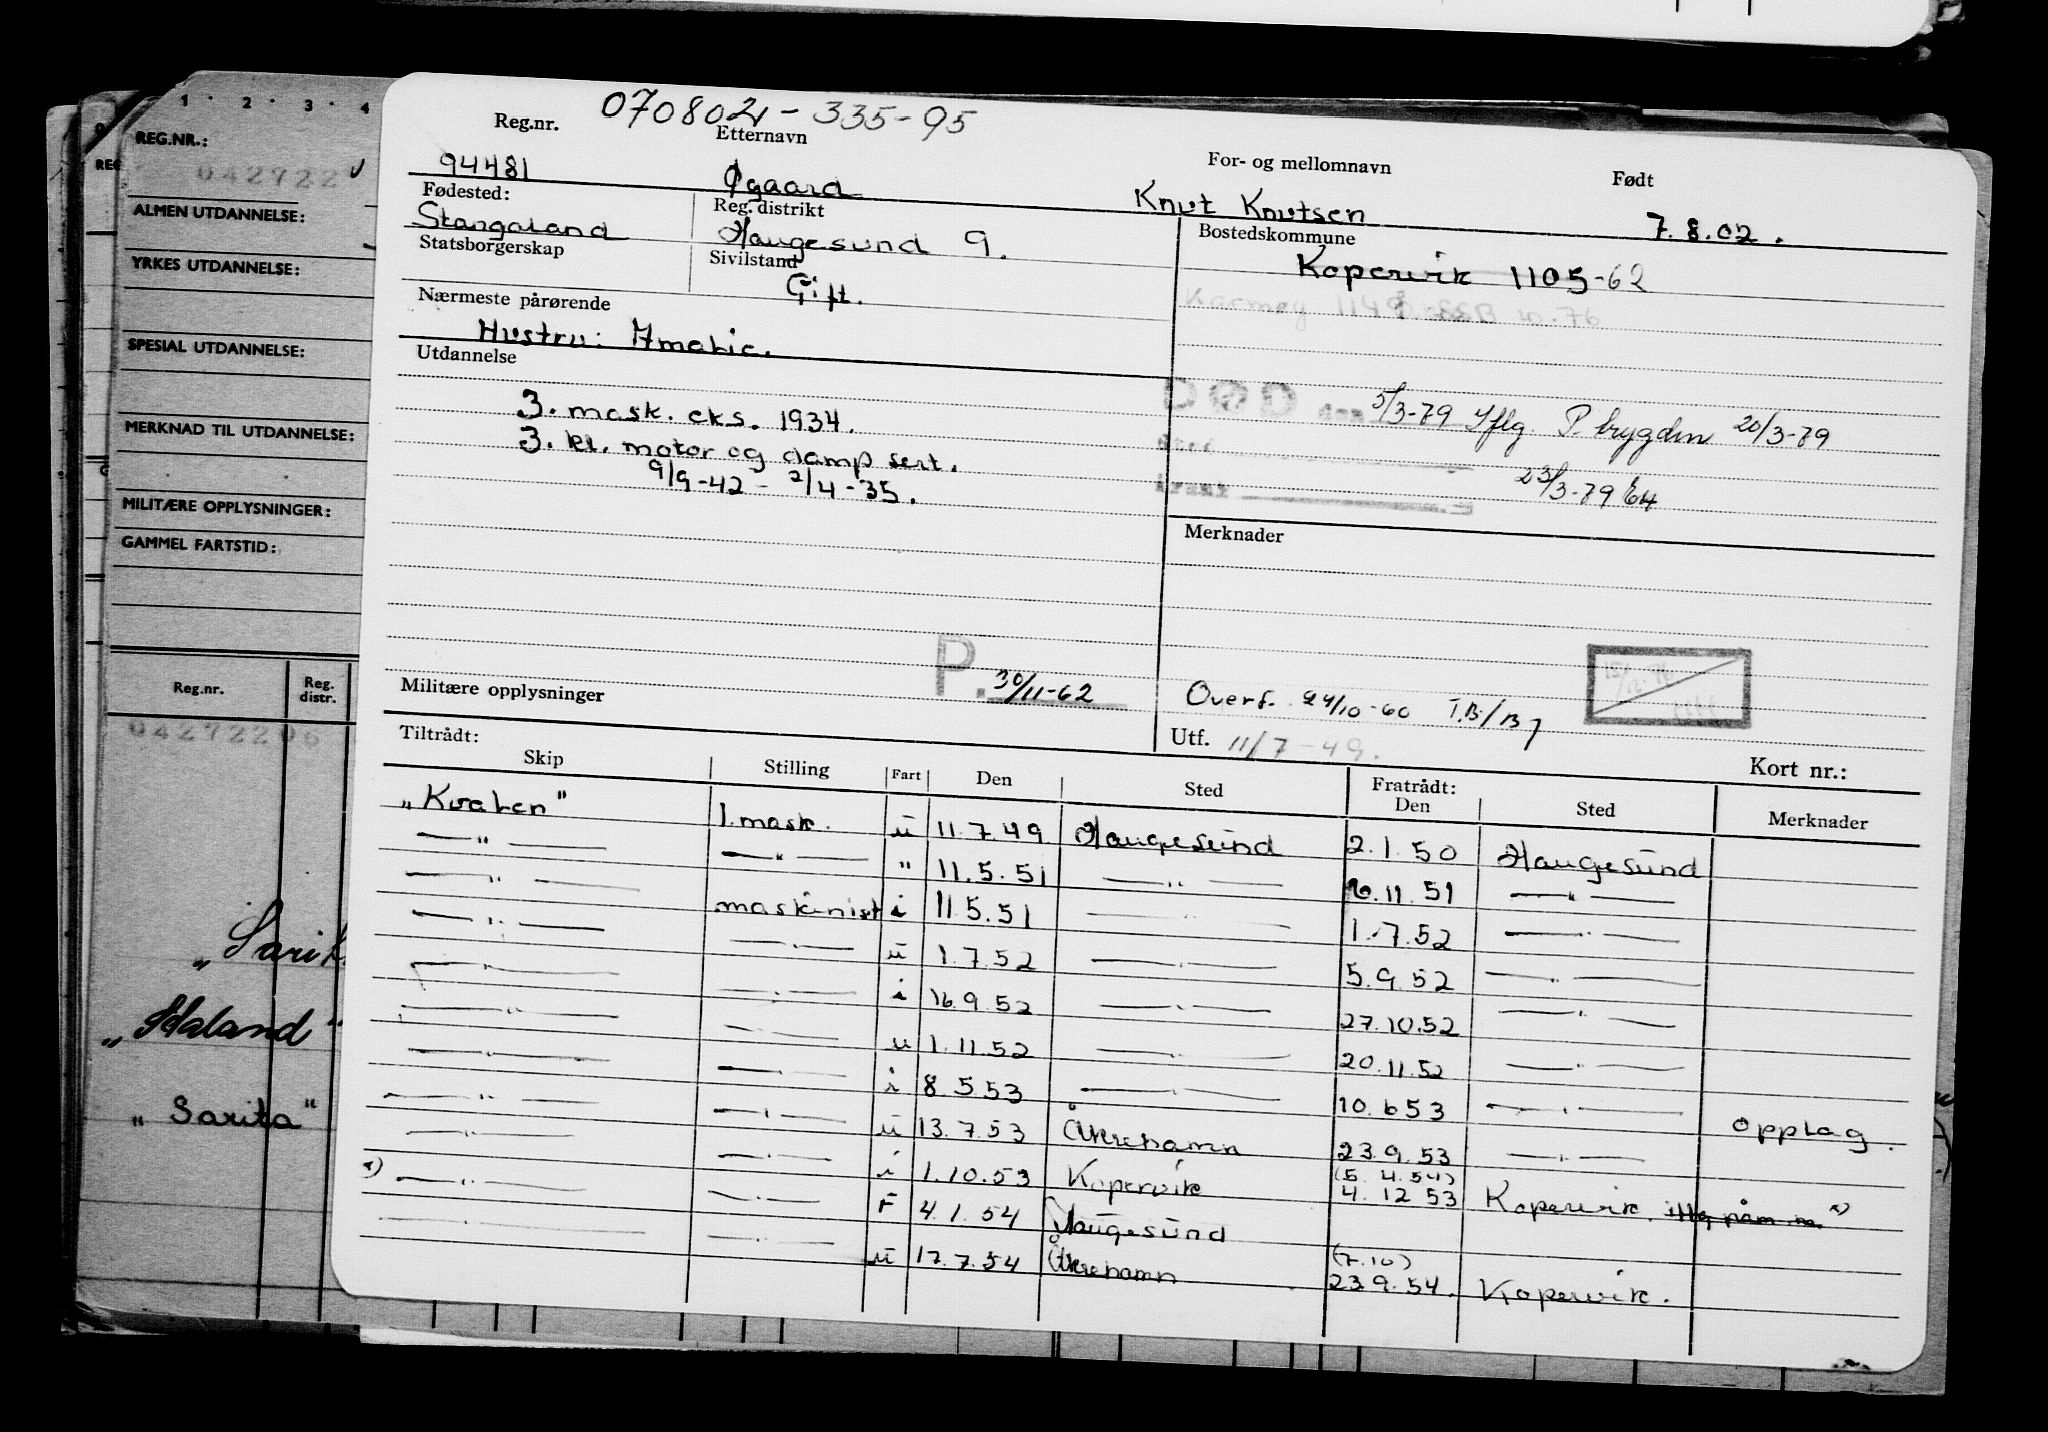 1 · 2 · 3 · 4
REG.NR.:
042722
ALMEN UTDANNELSE:
YRKES UTDANNELSE:
SPESIAL UTDANNELSE:
MERKNAD TIL UTDANNELSE:
MILITÆRE OPPLYSNINGER:
GAMMEL FARTSTID:
Reg.nr. Reg. distr.
„Haland"
„Sarita"
Reg.nr. 070802 - 335-95
Etternavn For- og mellomnavn Født
94481 Øgaard Knut Knutsen 7.8.02.
Fødested: Reg. distrikt Bostedskommune
Stangaland Haugesund 9. Kopervik 1105-62
Statsborgerskap Sivilstand
Gift.
Karmøy 1149
Nærmeste pårørende
Hustru: Amalie.
Utdannelse
3. mask. eks. 1934.
3. kl. motor og damp sert.
9/9-42 - 2/4-35.
DØD den 5/3-79 Iflg. P. brygden 20/3-79
23/3-79
Merknader
P. 30/11-62
Militære opplysninger Overf. 24/10-60
Utf. 11/7-49.
Tiltrådt: Fratrådt: Kort nr.:
Skip Stilling Fart Den Sted Den Sted Merknader
„Kvalen" 1.mask. u 11.7.49 Haugesund 2.1.50 Haugesund
—„— —„— " 11.5.51 —„— 6.11.51 —„—
—„— maskinist i 11.5.51 —„— 1.7.52 —„—
—„— —„— u 1.7.52 —„— 5.9.52 —„—
—„— —„— i 16.9.52 —„— 27.10.52 —„—
—„— —„— u 1.11.52 —„— 20.11.52 —„—
—„— —„— i 8.5.53 —„— 10.6.53 —„— opplag.
—„— —„— u 13.7.53 Åkrehamn 23.9.53 —„—
—„— —„— i 1.10.53 Kopervik (5.4.54) 4.12.53 Kopervik.
x) —„— —„— F 4.1.54 Haugesund
—„— —„— u 17.7.54 Åkrehamn (7.10) 23.9.54. Kopervik.